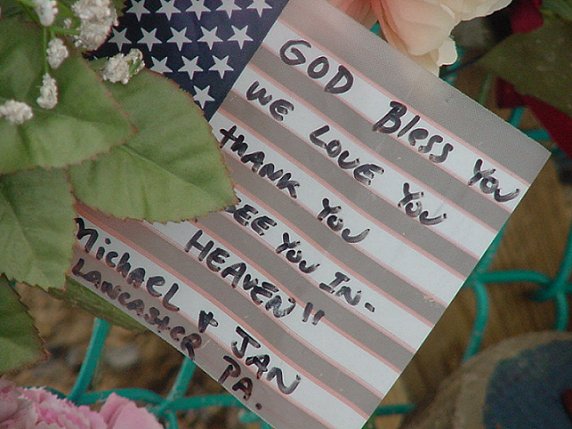 GOD Bless YOU
WE LOVE YOU
THANK YOU
SEE YOU IN-
HEAVEN!!
Michael & JAN
LANCASTER PA.